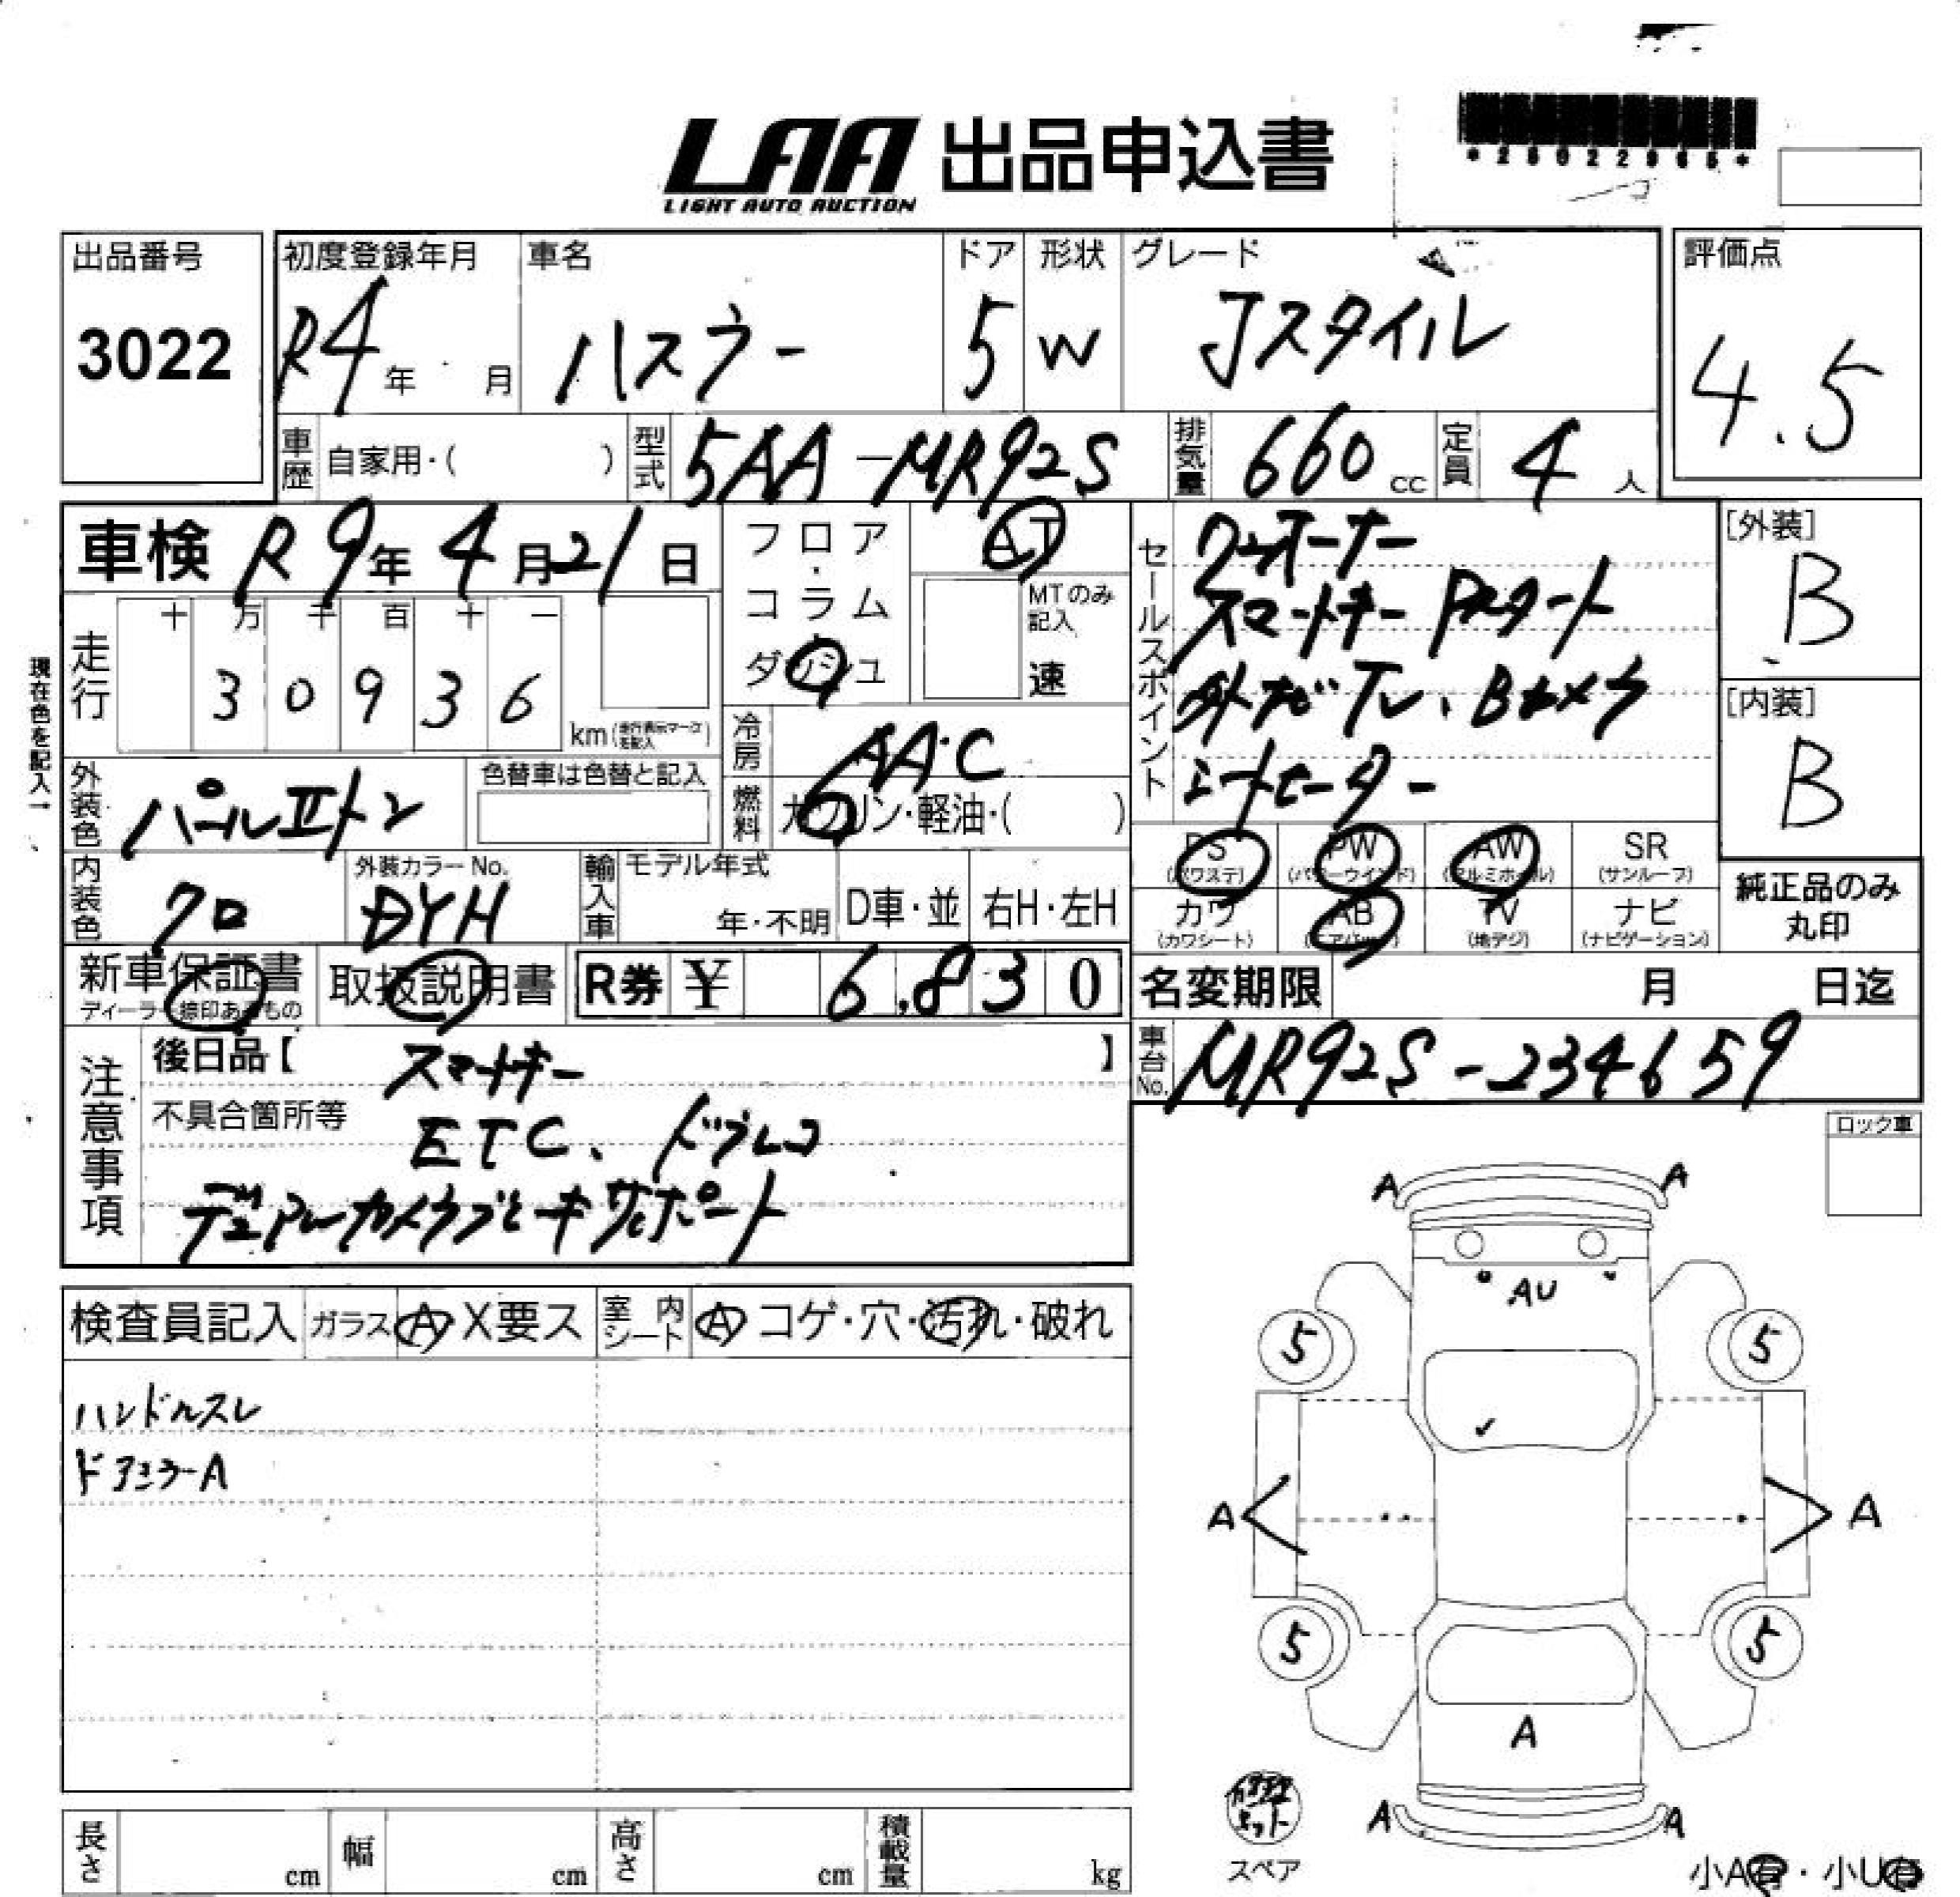 LAA 出品申込書
LIGHT AUTO AUCTION
*28022965*
出品番号
3022
初度登録年月
R4年 月
車名
ハスラー
ドア
5
形状
W
グレード
Jスタイル
評価点
4.5
車歴 自家用・( )
型式 5AA-MR92S
排気量 660cc
定員 4人
車検 R9年4月21日
フロア・コラム
ダッシュ
AT
MTのみ記入
速
セールスポイント
ワンオーナー
スマートキー Pスタート
外ナビTV、Bカメラ
シートヒーター
[外装]
B
[内装]
B
現在色を記入→
走行
十 万 千 百 十 一
3 0 9 3 6
km(走行表示マークを記入)
冷房 AAC
燃料 ガソリン・軽油・( )
外装色 パールIIトン
色替車は色替と記入
内装色 クロ
外装カラーNo.
DYH
輸入車 モデル年式
年・不明
D車・並
右H・左H
PS (パワステ)
PW (パワーウインド)
AW (アルミホイル)
SR (サンルーフ)
カワ (カワシート)
AB (エアバッグ)
TV (地デジ)
ナビ (ナビゲーション)
純正品のみ
丸印
新車保証書
ディーラー捺印あるもの
取扱説明書
R券 ¥ 6,830
名変期限 月 日迄
車台No. MR92S-234659
注意事項
後日品【 スマートキー 】
不具合箇所等
ETC、ドラレコ
デュアルカメラブレーキサポート
ロック車
検査員記入
ガラス A X要ス
室内シート A コゲ・穴・汚れ・破れ
ハンドルスレ
ドアミラーA
A A
AU
5 5
A A
5 5
A
A A
修理キット
スペア
小A有・小U有
長さ cm
幅 cm
高さ cm
積載量 kg